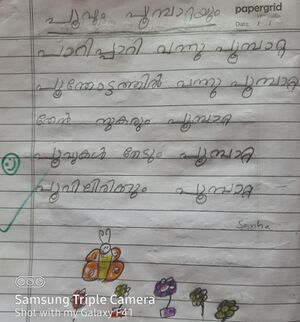 പൂവും പൂമ്പാറ്റയും
papergrid
Date: / /
പാറിപ്പാറി വന്നു പൂമ്പാറ്റ
പൂന്തോട്ടത്തിൽ വന്നു പൂമ്പാറ്റ
തേൻ നുകരും പൂമ്പാറ്റ
പൂവുകൾ തേടും പൂമ്പാറ്റ
പൂവിലിരിക്കും പൂമ്പാറ്റ
Sanha
Samsung Triple Camera
Shot with my Galaxy F41